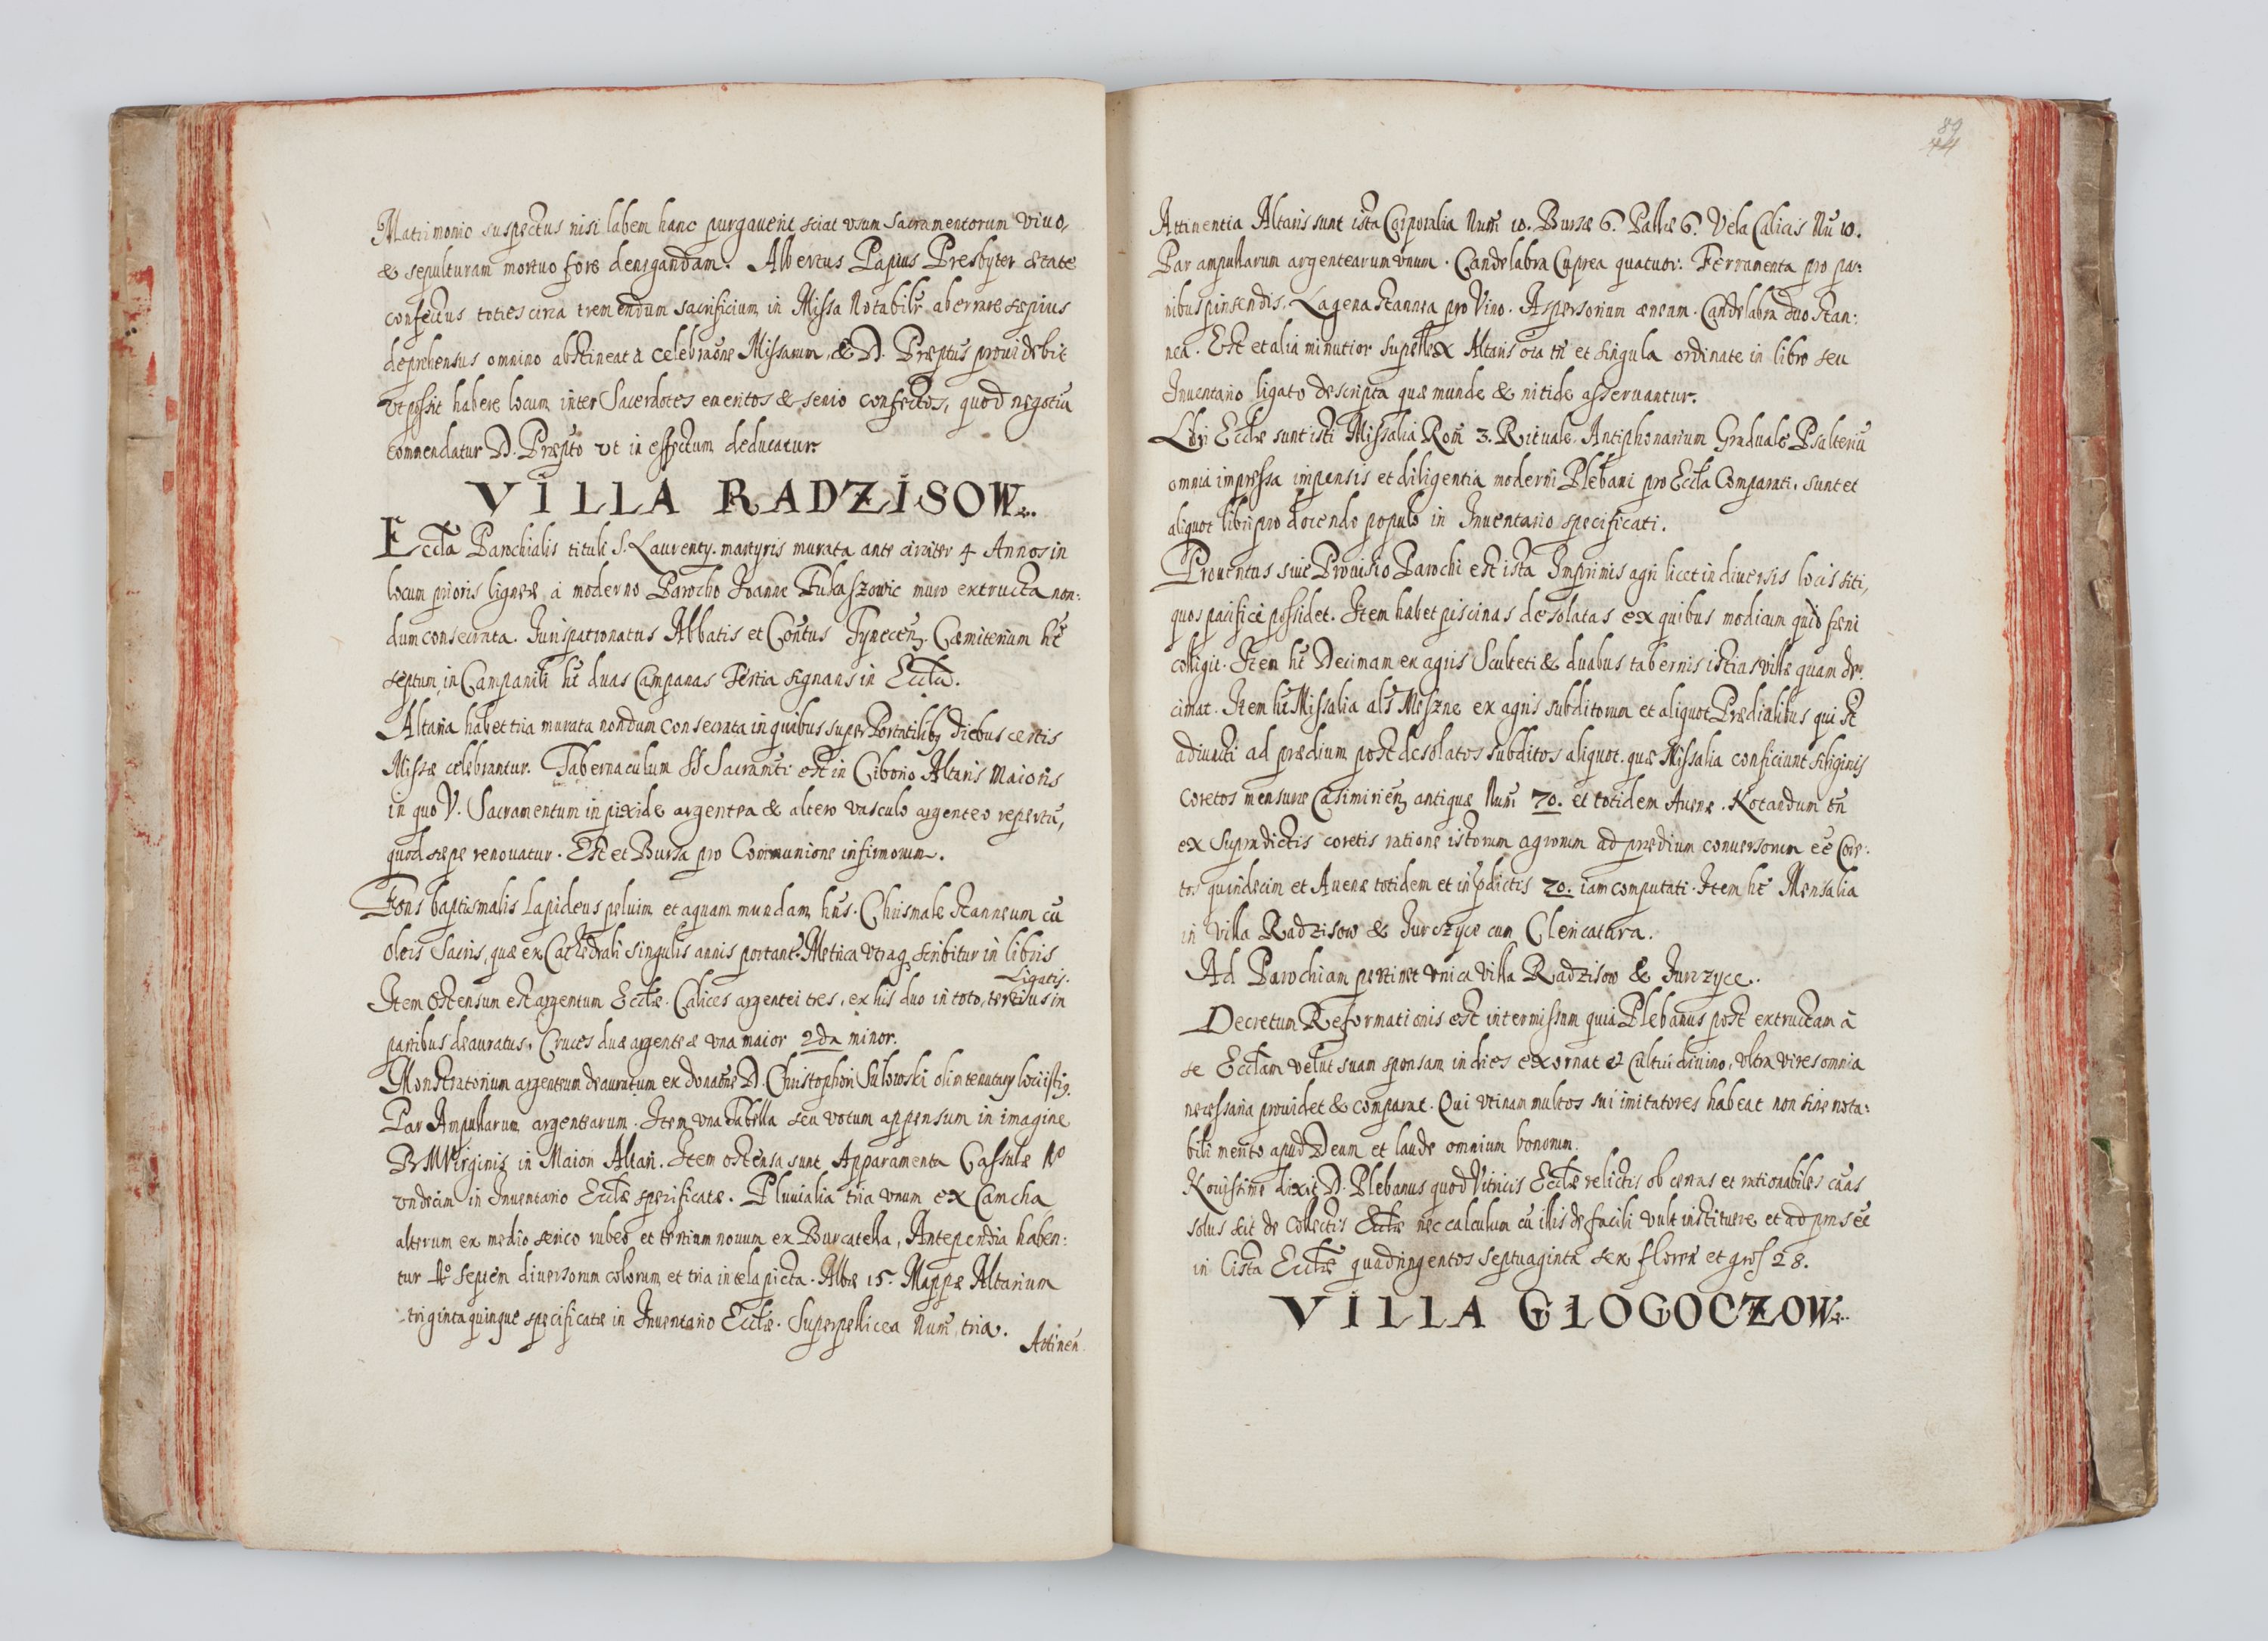 Matrimonio suspectus nisi labem hanc purgauerit sciat vsum Sacramentorum viuo,
& sepulturam mortuo fore denegandam. Albertus Papius Presbyter ætate
confectus toties circa tremendum sacrificium in Missa Notabilr̃ aberrare sæpius
deprehensus omnino abstineat à celebraõne Missarum, & D. Præptus prouidebit
vt possit habere locum inter Sacerdotes emeritos & senio confectos, quod negotiũ
commendatur D. Præpto vt in effectum deducatur.
VILLA RADZISOW.
Eccła Parochialis tituli S. Laurenty martyris murata ante circiter 4 Annos in
locum prioris ligneæ à moderno Parocho Joanne Łukaszowic muro extructa non:
dum consecrata. Jurispatronatus Abbatis et Conũtus Tynecen̄. Cæmiterium ht̃
septum, in Campanili ht̃ duas Campanas Tertia signans in Eccła.
Altaria habet tria murata nondum consecrata in quibus super Portatilibꝫ diebus certis
Missæ celebrantur. Tabernaculum SS Sacramti est in Ciborio Altaris Maioris
in quo V. Sacramentum in pixide argentea & altero vasculo argenteo repertũ,
quod sæpe renouatur. Est et Bursa pro Communione infirmorum.
Fons baptismalis Lapideus peluim et aquam mundam hñs. Chrismale stanneum cũ
oleis Sacris, quæ ex Cathedrali singulis annis portant. Metrica vtraqꝫ scribitur in libris
Ligatis.
Item ostensum est argentum Eccłæ. Calices argentei tres, ex his duo in toto, tertius in
partibus deauratus. Cruces duæ argenteæ vna maior 2da minor.
Monstratorium argenteum deauratum ex donatiõe D. Christophori Sulowski olim tenutary loci istiꝫ.
Par Ampullarum argentearum. Item vna Tabella seu votum appensum in imagine
B M Virginis in Maiori Altari. Item ostensa sunt Apparamenta Casulæ No
vndecim in Inuentario Eccłæ specificatæ. Pluuialia tria vnum ex Camcha
alterum ex medio serico rubeo et tertium nouum ex Burcatella, Antependia haben:
tur No septem diuersorum colorum et tria in tela picta. Albæ 15. Mappæ Altarium
triginta quinque specificatæ in Inuentario Eccłæ. Superpellicea Num̃ tria.
Attinen
89
44
Attinentia Altaris sunt ista Corporalia Num̃ 10. Bursæ 6. Pallæ 6. Vela Calicis Nũ 10.
Par ampullarum argentearum vnum. Candelabra Cuprea quatuor. Ferramenta pro pa:
nibus pinsendis. Lagena stannea pro Vino. Aspersorium æneum. Candelabra duo stan:
nea. Est et alia minutior supellex Altaris oĩa tñ et singula ordinate in libro seu
Inuentario ligato descripta quæ munde & nitide asseruantur.
Libri Eccłæ sunt isti Missalia Rom̃ 3. Rituale. Antiphonarium Graduale Psalteriũ
omnia impressa impensis et diligentia moderni Plebani pro Eccła Comparati, sunt et
aliquot libri pro docendo populo in Inuentario specificati.
Prouentus siue Prouisio Parochi est ista Imprimis agri licet in diuersis locis siti,
quos pacificè possidet. Item habet piscinas desolatas ex quibus modicum quid fæni
colligit. Item ht̃ Decimam ex agris Sculteti & duabus tabernis istius villæ quam de:
cimat. Item ht̃ Missalia als Meszne ex agris subditorum et aliquot Prædialibus qui st̃
adiuncti ad prædium post desolatos subditos aliquot. quæ Missalia conficiunt siliginis
coretos mensuræ Casimirien̄ antiquæ Num̃ 70. et totidem Auenæ. Notandum tñ
ex supradictis coretis ratione istorum agrorum ad prædium conuersorum eẽ Core:
tos quindecim et Auenæ totidem et in prædictis 70. iam computati. Item ht̃ Mensalia
in villa Radzisow & Jurczyce cum Clericatura.
Ad Parochiam pertinet vnica villa Radzisow & Jurczyce.
Decretum Reformationis est intermissum quia Plebanus post extructam à
se Eccłam velut suam sponsam in dies exornat & Cultui diuino, vltra vires omnia
necessaria prouidet & comparat. Qui vtinam multos sui imitatores habeat non sine nota:
bili merito apud Deum et laude omnium bonorum.
Nouissime dixit D. Plebanus quod Vitricis Eccłæ relictis ob certas et rationabiles cãas
solus scit de Collectis Eccłæ nec calculum cũ illis de facili vult instituere et ad prns eẽ
in Cista Eccłæ quadringentos septuaginta sex floren̄ et gros 28.
VILLA GŁOGOCZOW.